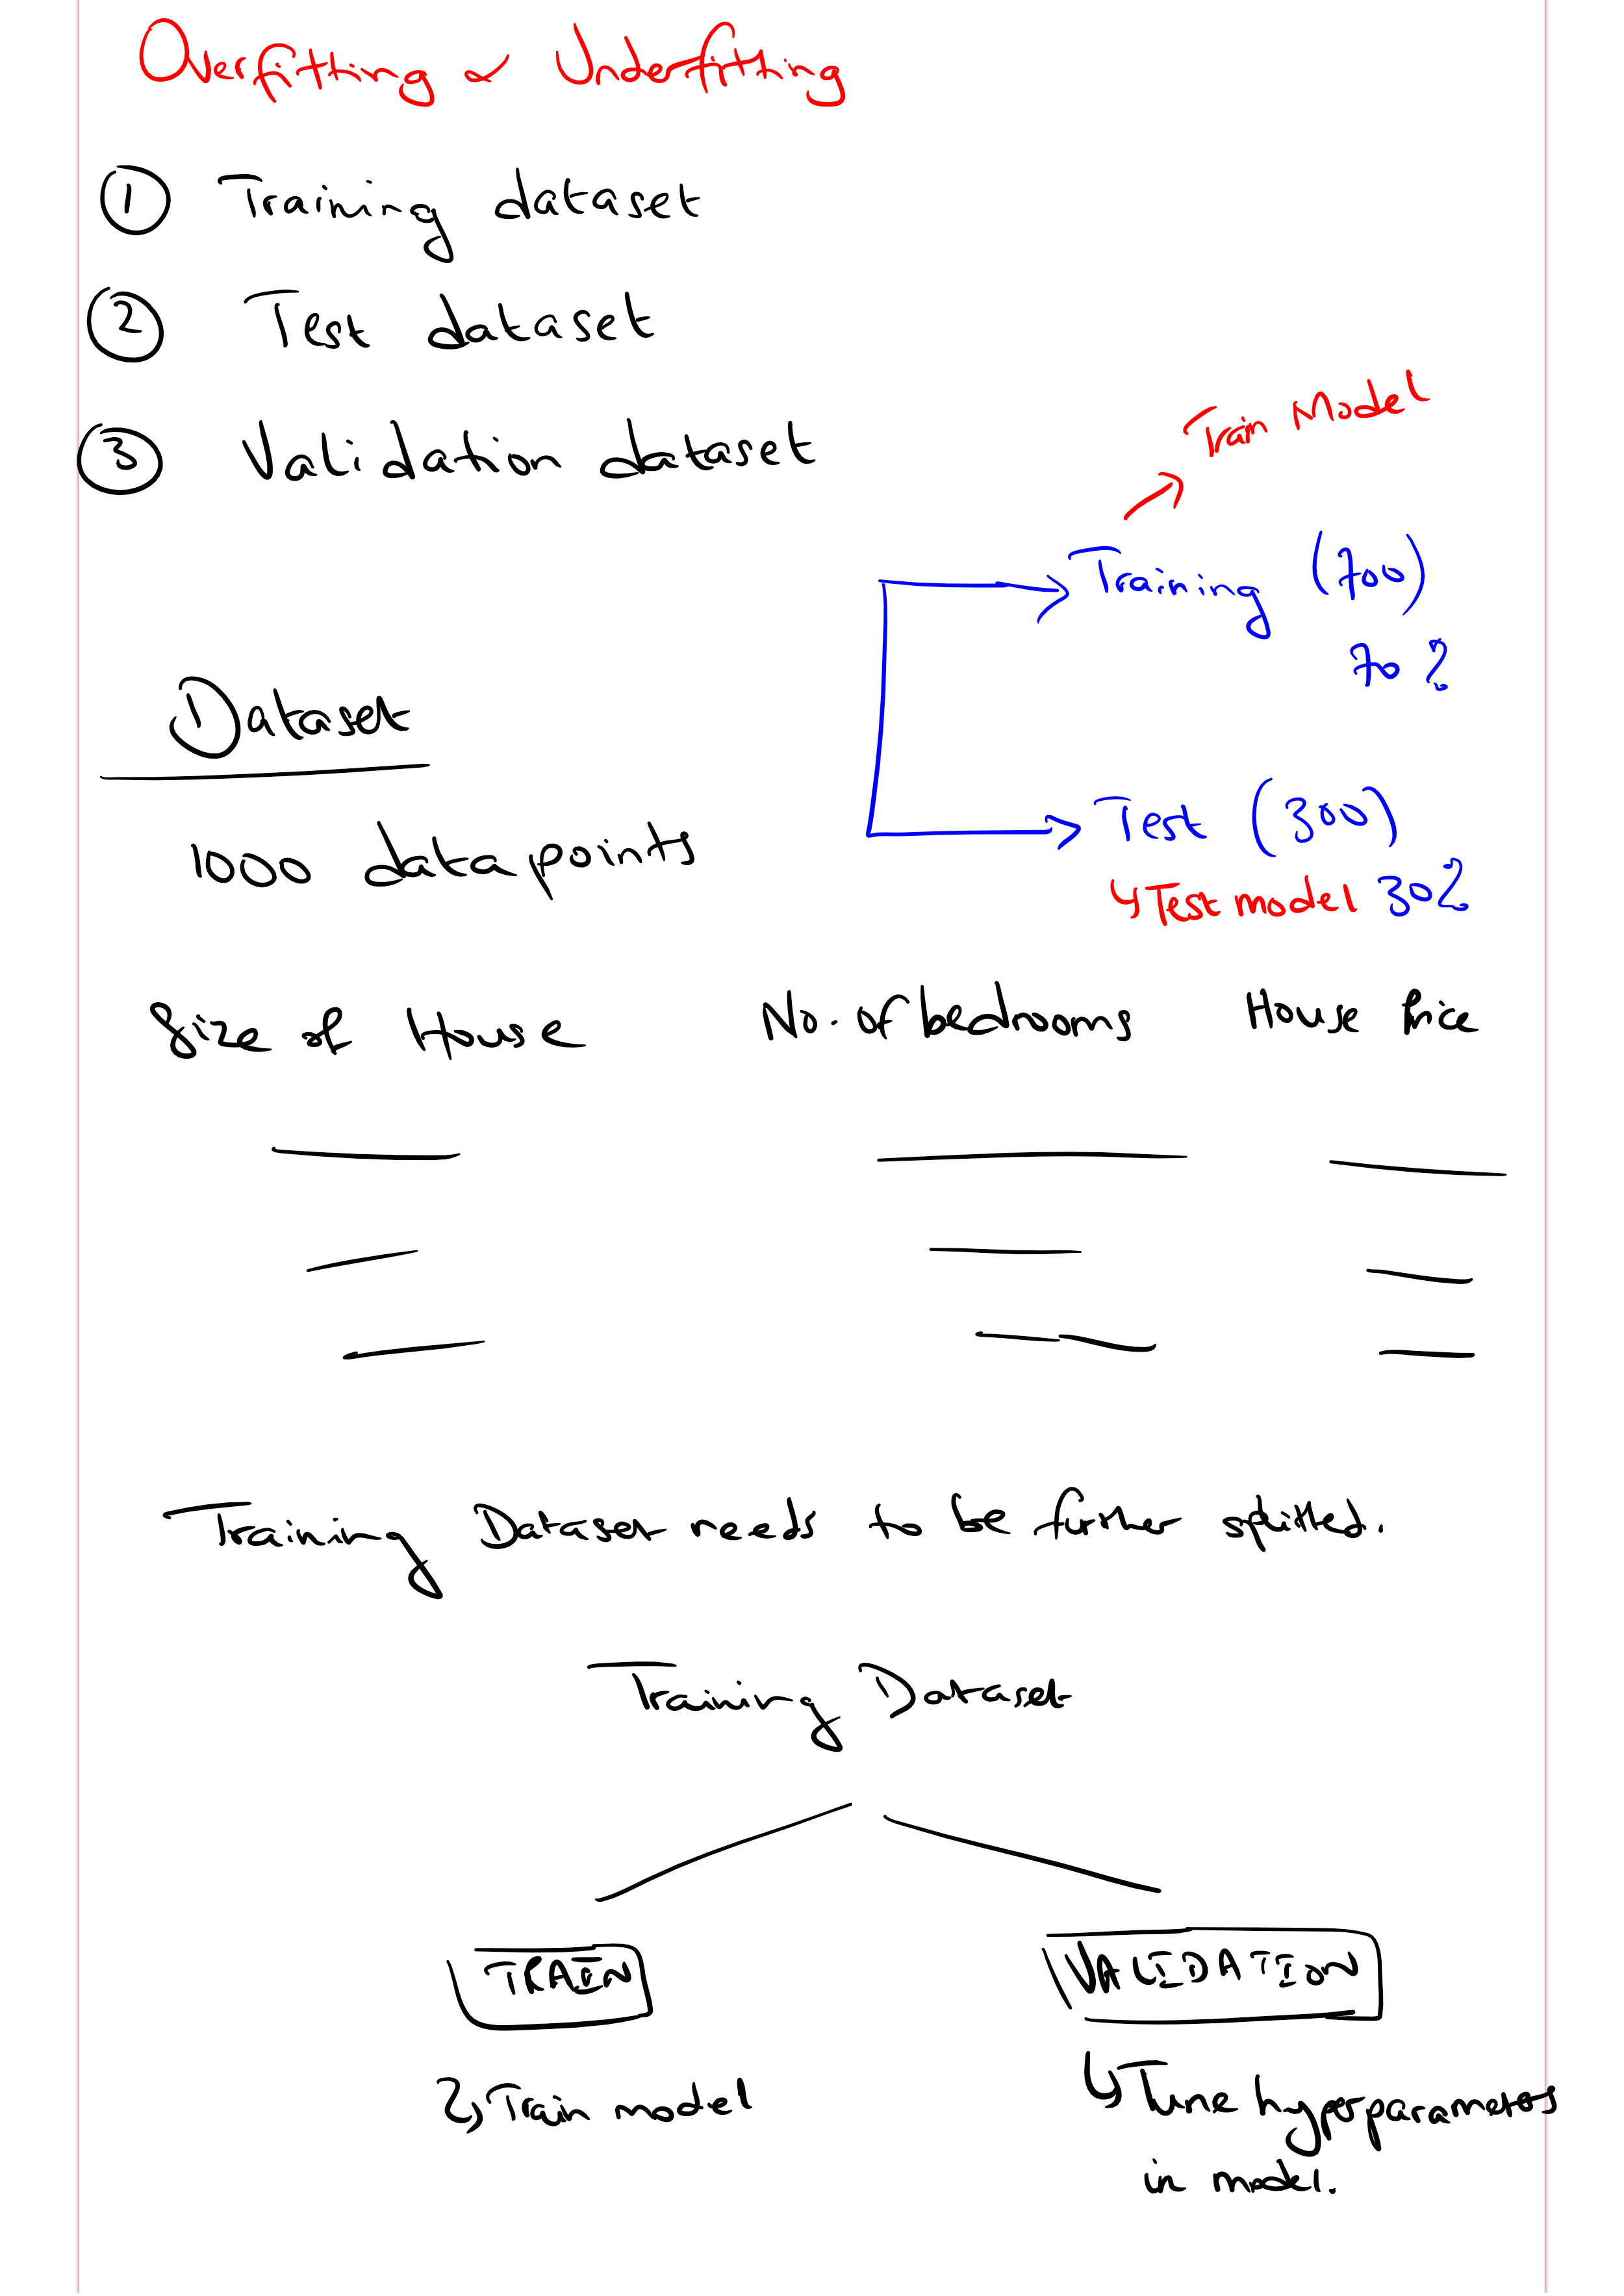 Overfitting & Underfitting
① Training dataset
② Test dataset
③ Validation dataset
Train Model
Training (700)
70 %
Dataset
1000 data points
Test (300)
↳ Test model 30%
Size of House No. of bedrooms House Price
Training Dataset needs to be further splitted.
Training Dataset
TRAIN VALIDATION
↳ Train model ↳ Tune hyperparameters
in model.